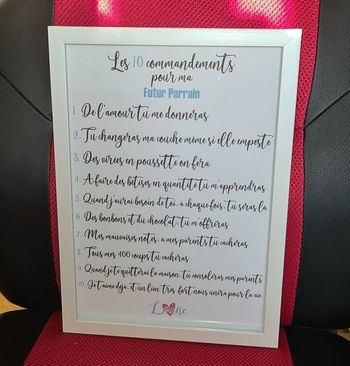 Les 10 commandements
pour ma
Futur Parrain
1. De l'amour tu me donneras
2. Tu changeras ma couche même si elle empeste
3. Des virées en poussette on fera
4. A faire des bêtises en quantité tu m'apprendras
5. Quand j'aurai besoin de toi, à chaque fois, tu seras là
6. Des bonbons et du chocolat, tu m'offriras
7. Mes mauvaises notes, à mes parents tu cacheras
8. Tous mes 400 coups tu cacheras
9. Quand je quitterai la maison, tu consoleras mes parents
10. Je t'aime déjà, et un lien très fort nous unira pour la vie
Louise